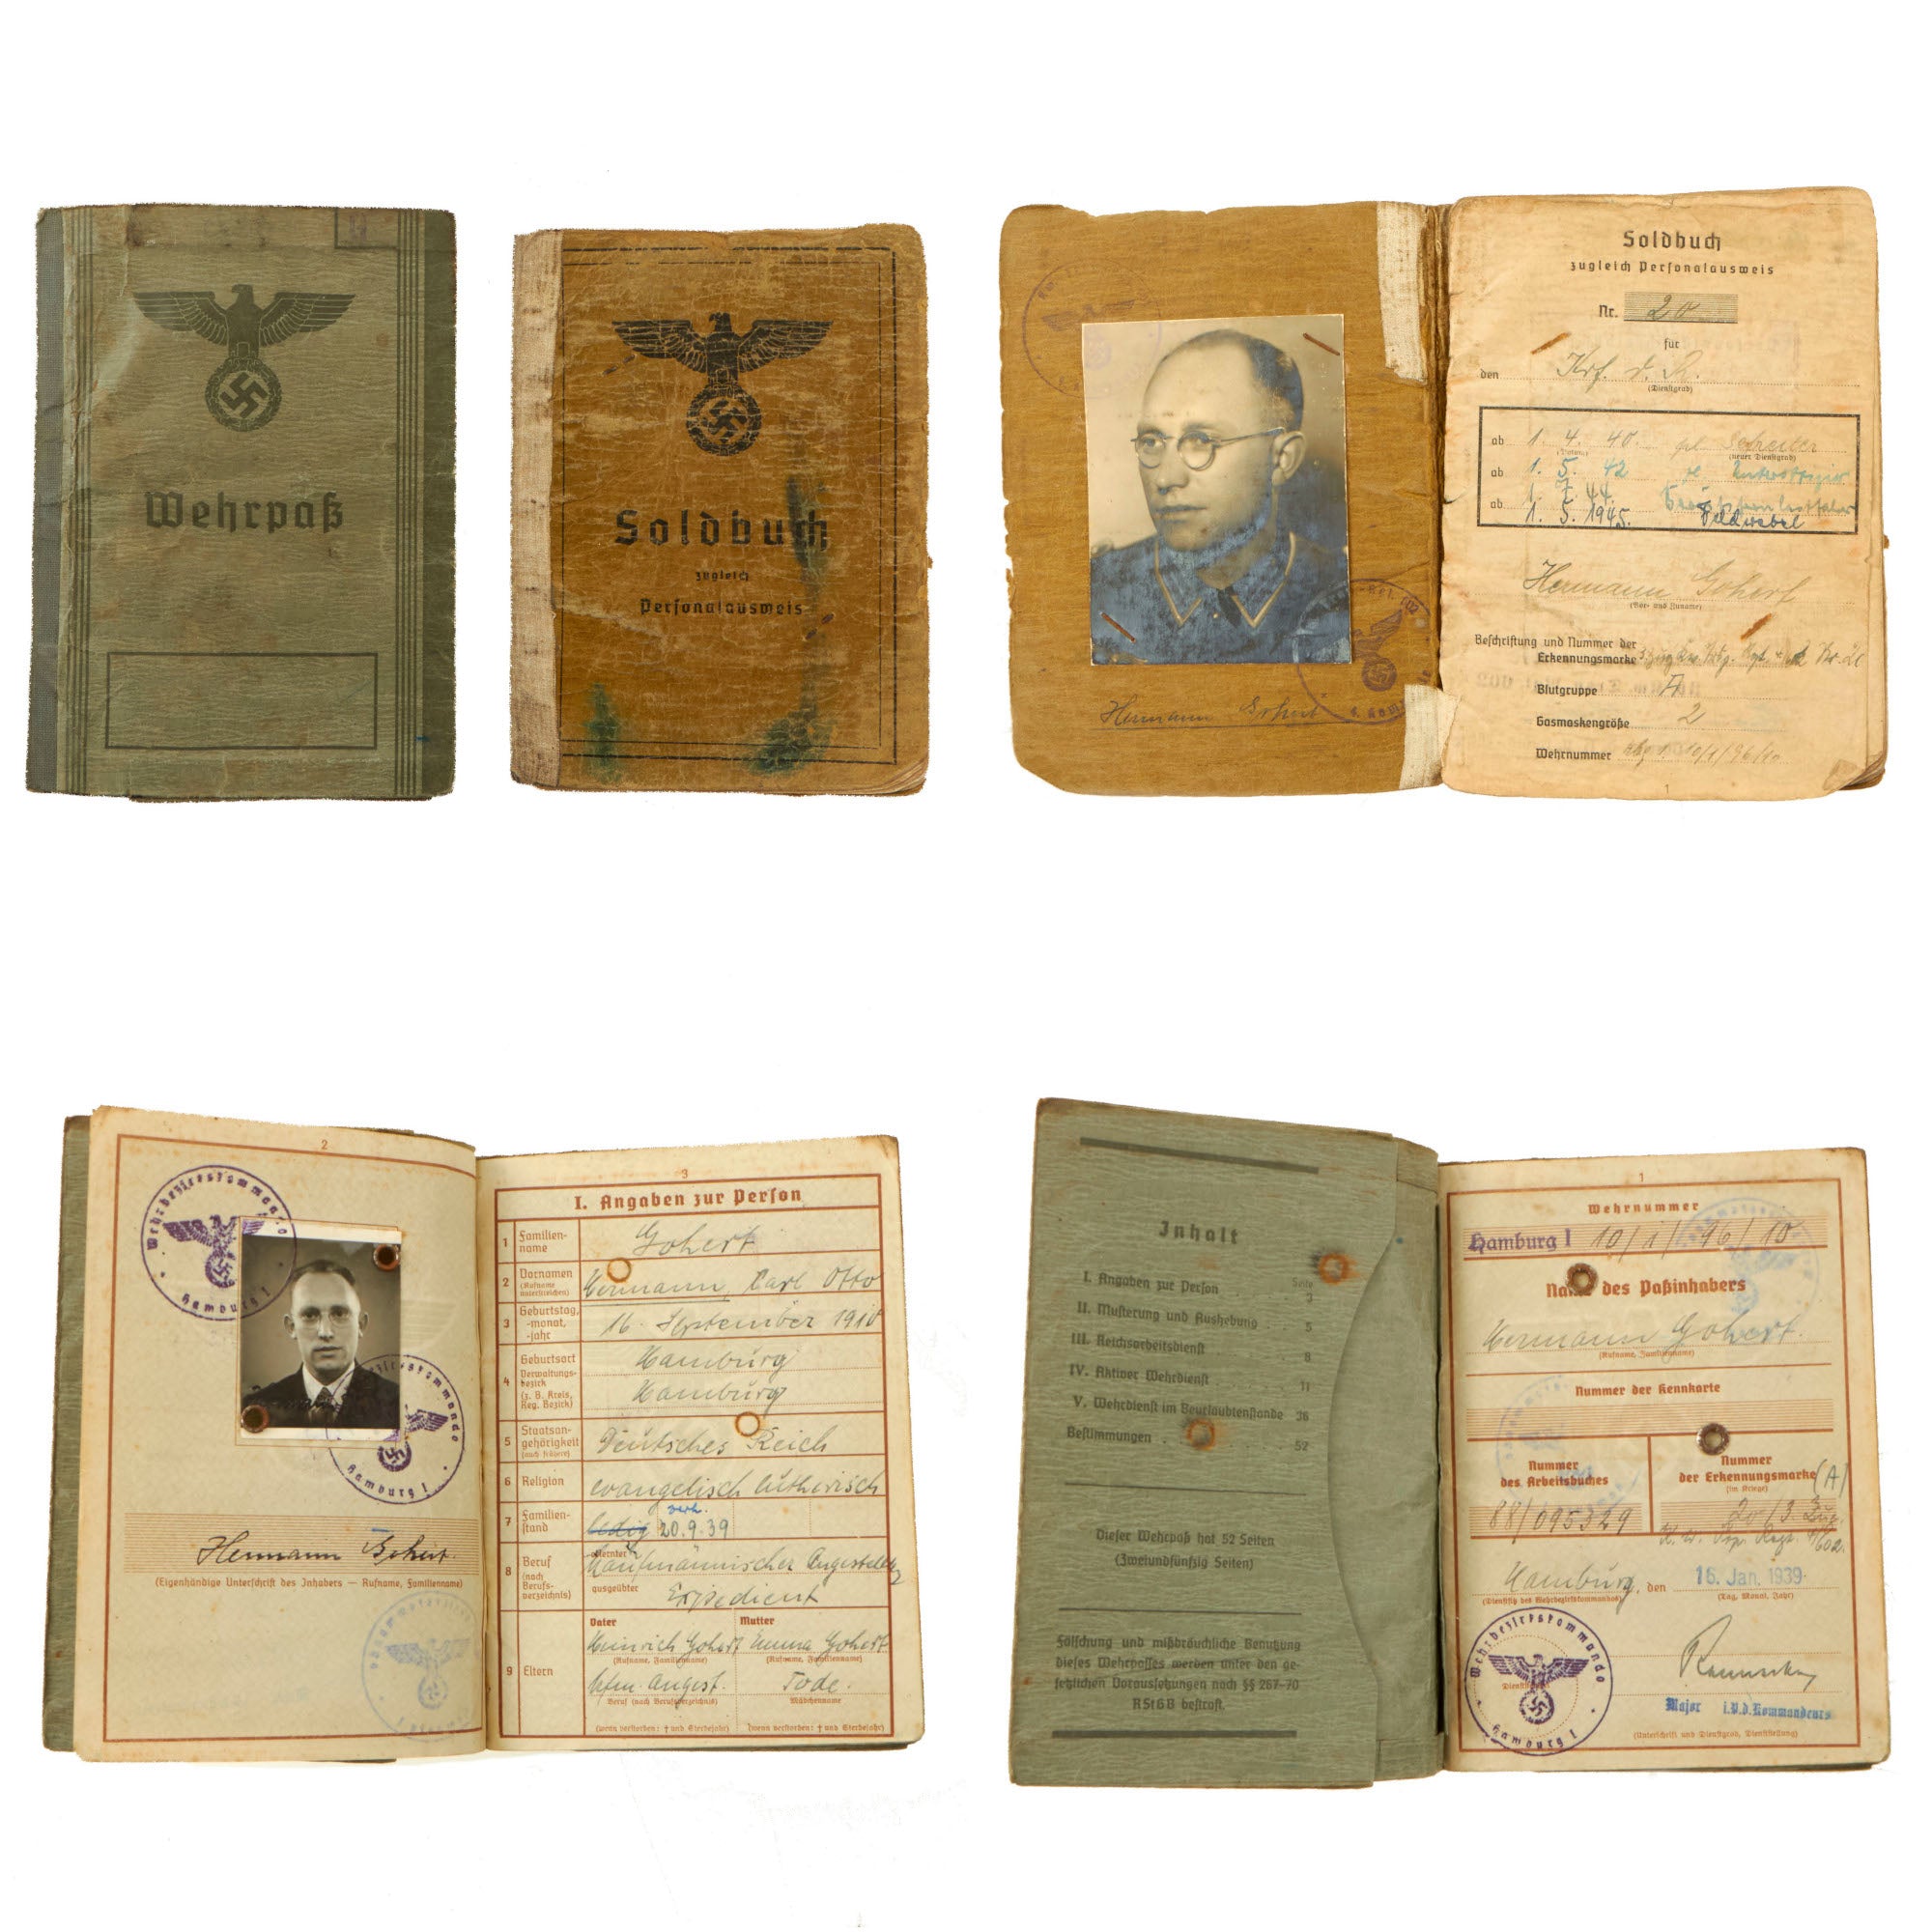 Wehrpaß
Soldbuch
zugleich
Personalausweis
Hermann Gohert
Soldbuch
zugleich Personalausweis
Nr. 20
für
den Krf. d. R.
(Dienstgrad)
ab 1. 4. 40.
(Datum) (neuer Dienstgrad)
ab 1. 5. 42 Unteroffizier
ab 1. 7. 44.
1. 5. 1945. Feldwebel
Hermann Gohert
(Vor- und Zuname)
Beschriftung und Nummer der
Erkennungsmarke
Blutgruppe A
Gasmaskengröße 2
Wehrnummer 10/1/96/10
1
2
Wehrbezirkskommando
Hamburg I
Wehrbezirkskommando
Hamburg I
Hermann Gohert.
(Eigenhändige Unterschrift des Inhabers — Rufname, Familienname)
3
I. Angaben zur Person
1 Familien-
name Gohert
2 Vornamen
(Rufname
unterstreichen) Hermann, Carl Otto
3 Geburtstag,
-monat,
-jahr 16. September 1910
4 Geburtsort Hamburg
Verwaltungs-
bezirk
(z. B. Kreis,
Reg. Bezirk) Hamburg
5 Staatsan-
gehörigkeit
(auch frühere) Deutsches Reich
6 Religion evangelisch lutherisch
7 Familien-
stand ledig verh. 20.9.39
8 Beruf
(nach
Berufs-
verzeichnis)
erlernter Kaufmännischer Angestellter
ausgeübter Expedient
9 Eltern
Vater Mutter
Heinrich Gohert Emma Gohert
(Rufname, Familienname) (Rufname, Familienname)
kfm. Angest. Tode.
Beruf (nach Berufsverzeichnis) Mädchenname
(wenn verstorben: † und Sterbejahr) (wenn verstorben: † und Sterbejahr)
Inhalt
Seite
I. Angaben zur Person . . 3
II. Musterung und Aushebung . . 5
III. Reichsarbeitsdienst . . . 8
IV. Aktiver Wehrdienst . . . 11
V. Wehrdienst im Beurlaubtenstande 36
Bestimmungen . . . 52
Dieser Wehrpaß hat 52 Seiten
(Zweiundfünfzig Seiten)
Fälschung und mißbräuchliche Benutzung
dieses Wehrpasses werden unter den ge-
setzlichen Voraussetzungen nach §§ 267-70
RStGB bestraft.
1
Wehrnummer
Hamburg I 10/1/96/10
Name des Paßinhabers
Hermann Gohert.
(Rufname, Familienname)
Nummer der Kennkarte
Nummer
des Arbeitsbuches
88/095329
Nummer
der Erkennungsmarke (A)
(im Kriege)
20/3. Zug.
Hamburg, den 16. Jan. 1939
(Dienstsitz des Wehrbezirkskommandos) (Tag, Monat, Jahr)
Wehrbezirkskommando
Hamburg I
Major i.V.d.Kommandeurs
(Unterschrift und Dienstgrad, Dienststellung)